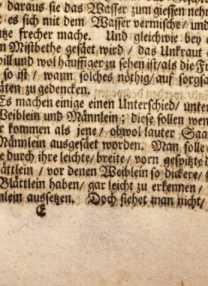 daraus sie das Wasser zum giessen nehm
es sich mit dem Wasser vermische/ und
tze frecher mache. Und gleichwie bey
n Mistbethe gesäet wird/ das Unkraut
vill und viel häuffiger zu sehen ist/ als die Fr
so ist/ wann solches nöthig/ auf sorgsa
äten zu gedencken.
Es machen einige einen Unterschied/ unter
Weiblein und Männlein; diese sollen wen
r kommen als jene/ obwol lauter Saa
Männlein ausgesäet worden. Man solle
e durch ihre leichte/ breite/ vorn gespitzte
lättlein/ vor denen Weiblein so dickere/
Blättlein haben/ gar leicht zu erkennen/
nlein aussetzen. Doch siehet man nicht/
E